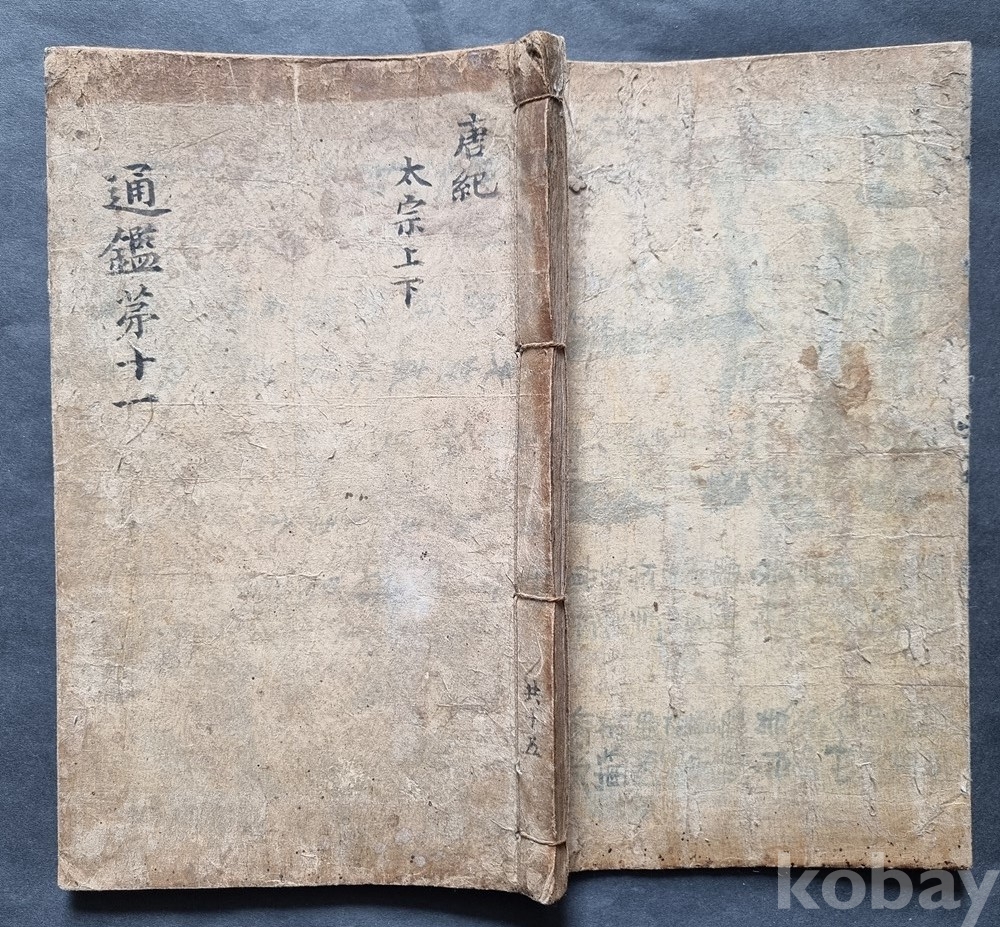 通鑑苐十一
唐紀
太宗上下
共十五
kobay